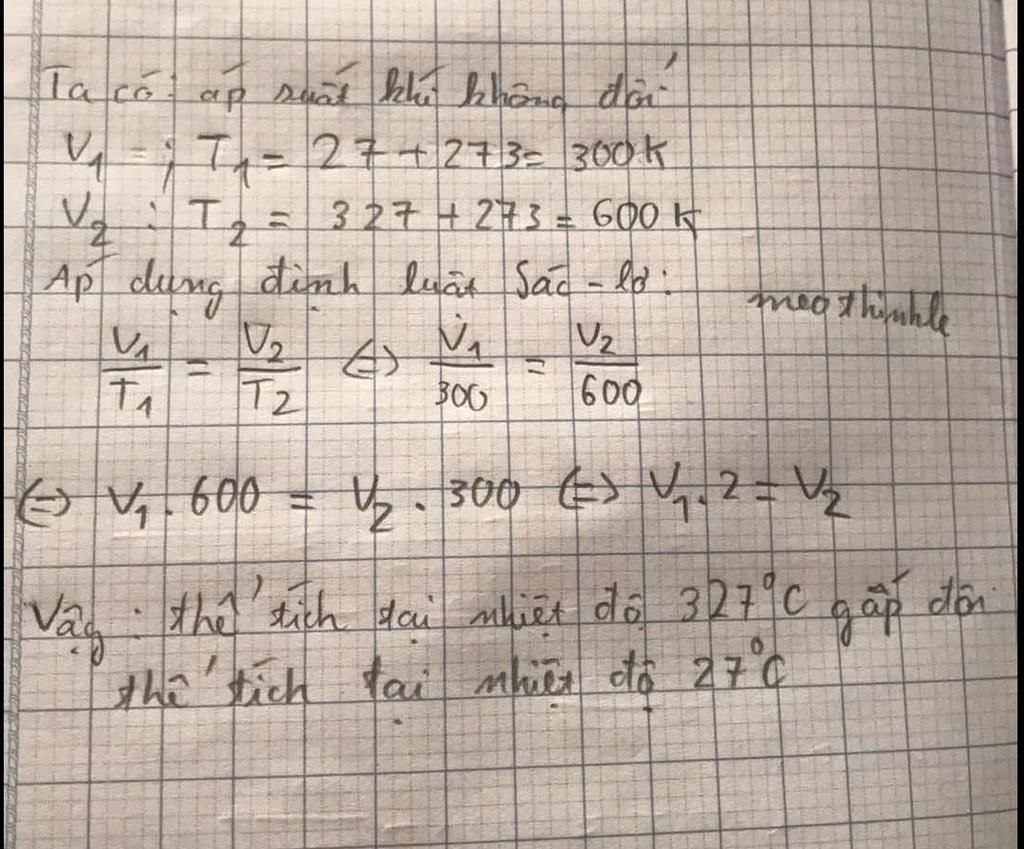 Ta có: áp suất khí không đổi
V₁ ; T₁ = 27 + 273 = 300K
V₂ ; T₂ = 327 + 273 = 600K
Áp dụng định luật Sác-lơ:
meothinhle
V₁/T₁ = V₂/T₂ <=> V₁/300 = V₂/600
<=> V₁. 600 = V₂ . 300 <=> V₁. 2 = V₂
Vậy: thể tích tại nhiệt độ 327°C gấp đôi
thể tích tại nhiệt độ 27°C